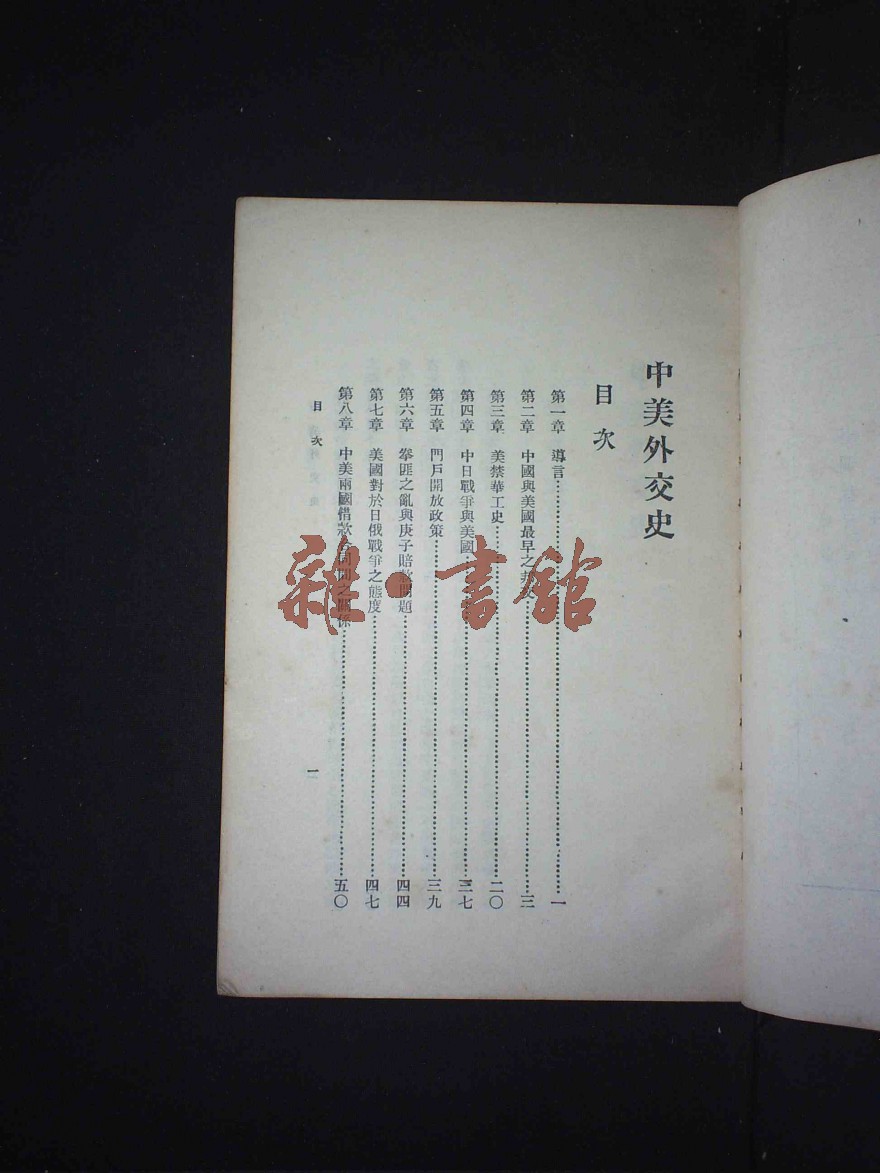 中美外交史
目次
第一章 導言……一
第二章 中國與美國最早之……三
第三章 美禁華工史……二〇
第四章 中日戰爭與美國……三七
第五章 門戶開放政策……三九
第六章 拳匪之亂與庚子賠款問題……四四
第七章 美國對於日俄戰爭之態度……四七
第八章 中美兩國借款合同間之關係……五〇
目次
一
雜·書館